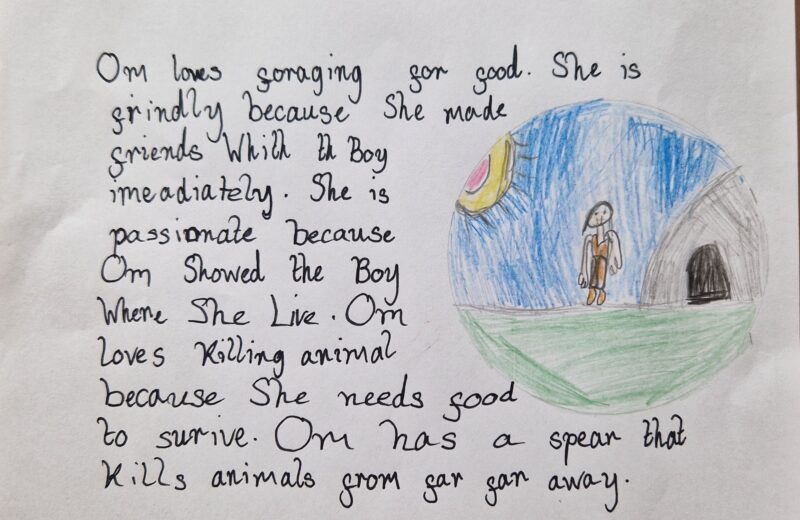 Om loves foraging for food. She is
frindly because She made
friends Whith th Boy
imeadiately. She is
passionate because
Om Showed the Boy
Where She Live. Om
loves Killing animal
because She needs food
to surive. Om has a spear that
Kills animals from far far away.